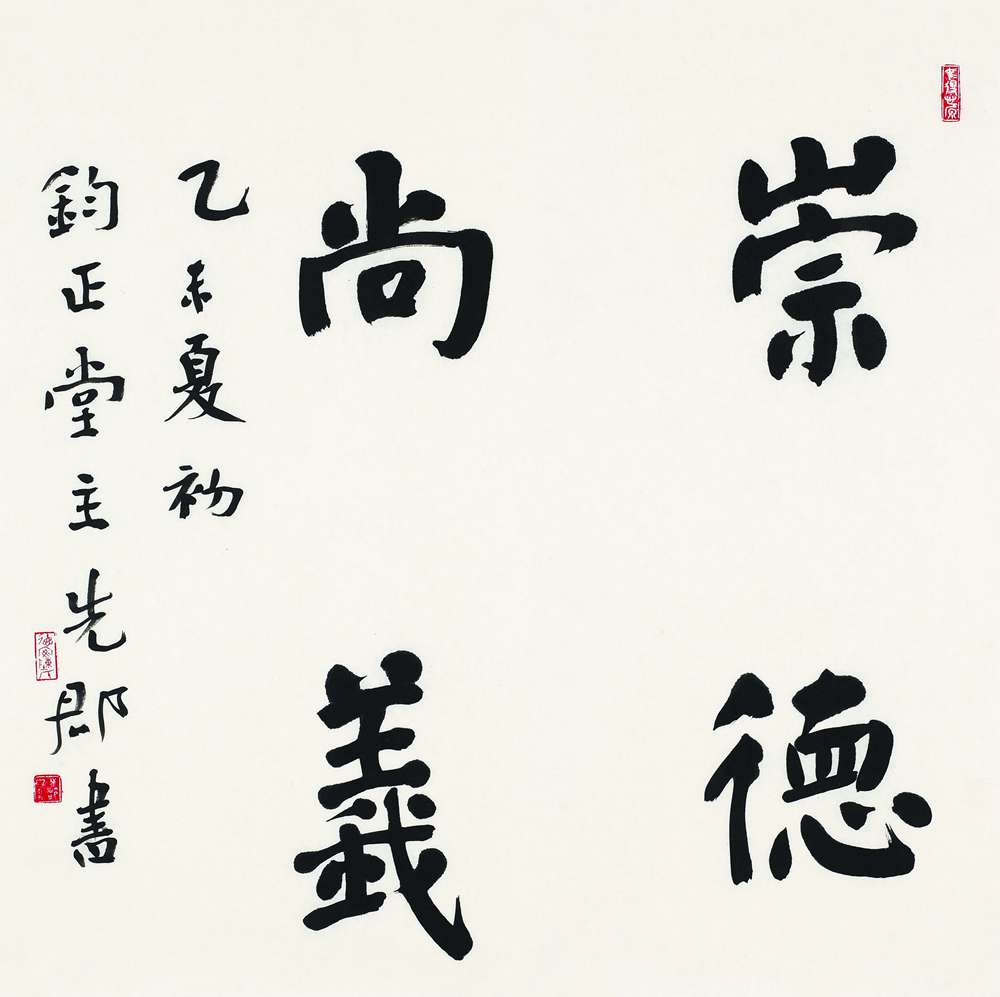 崇德
尚義
乙未夏初
鈞正堂主先郡書